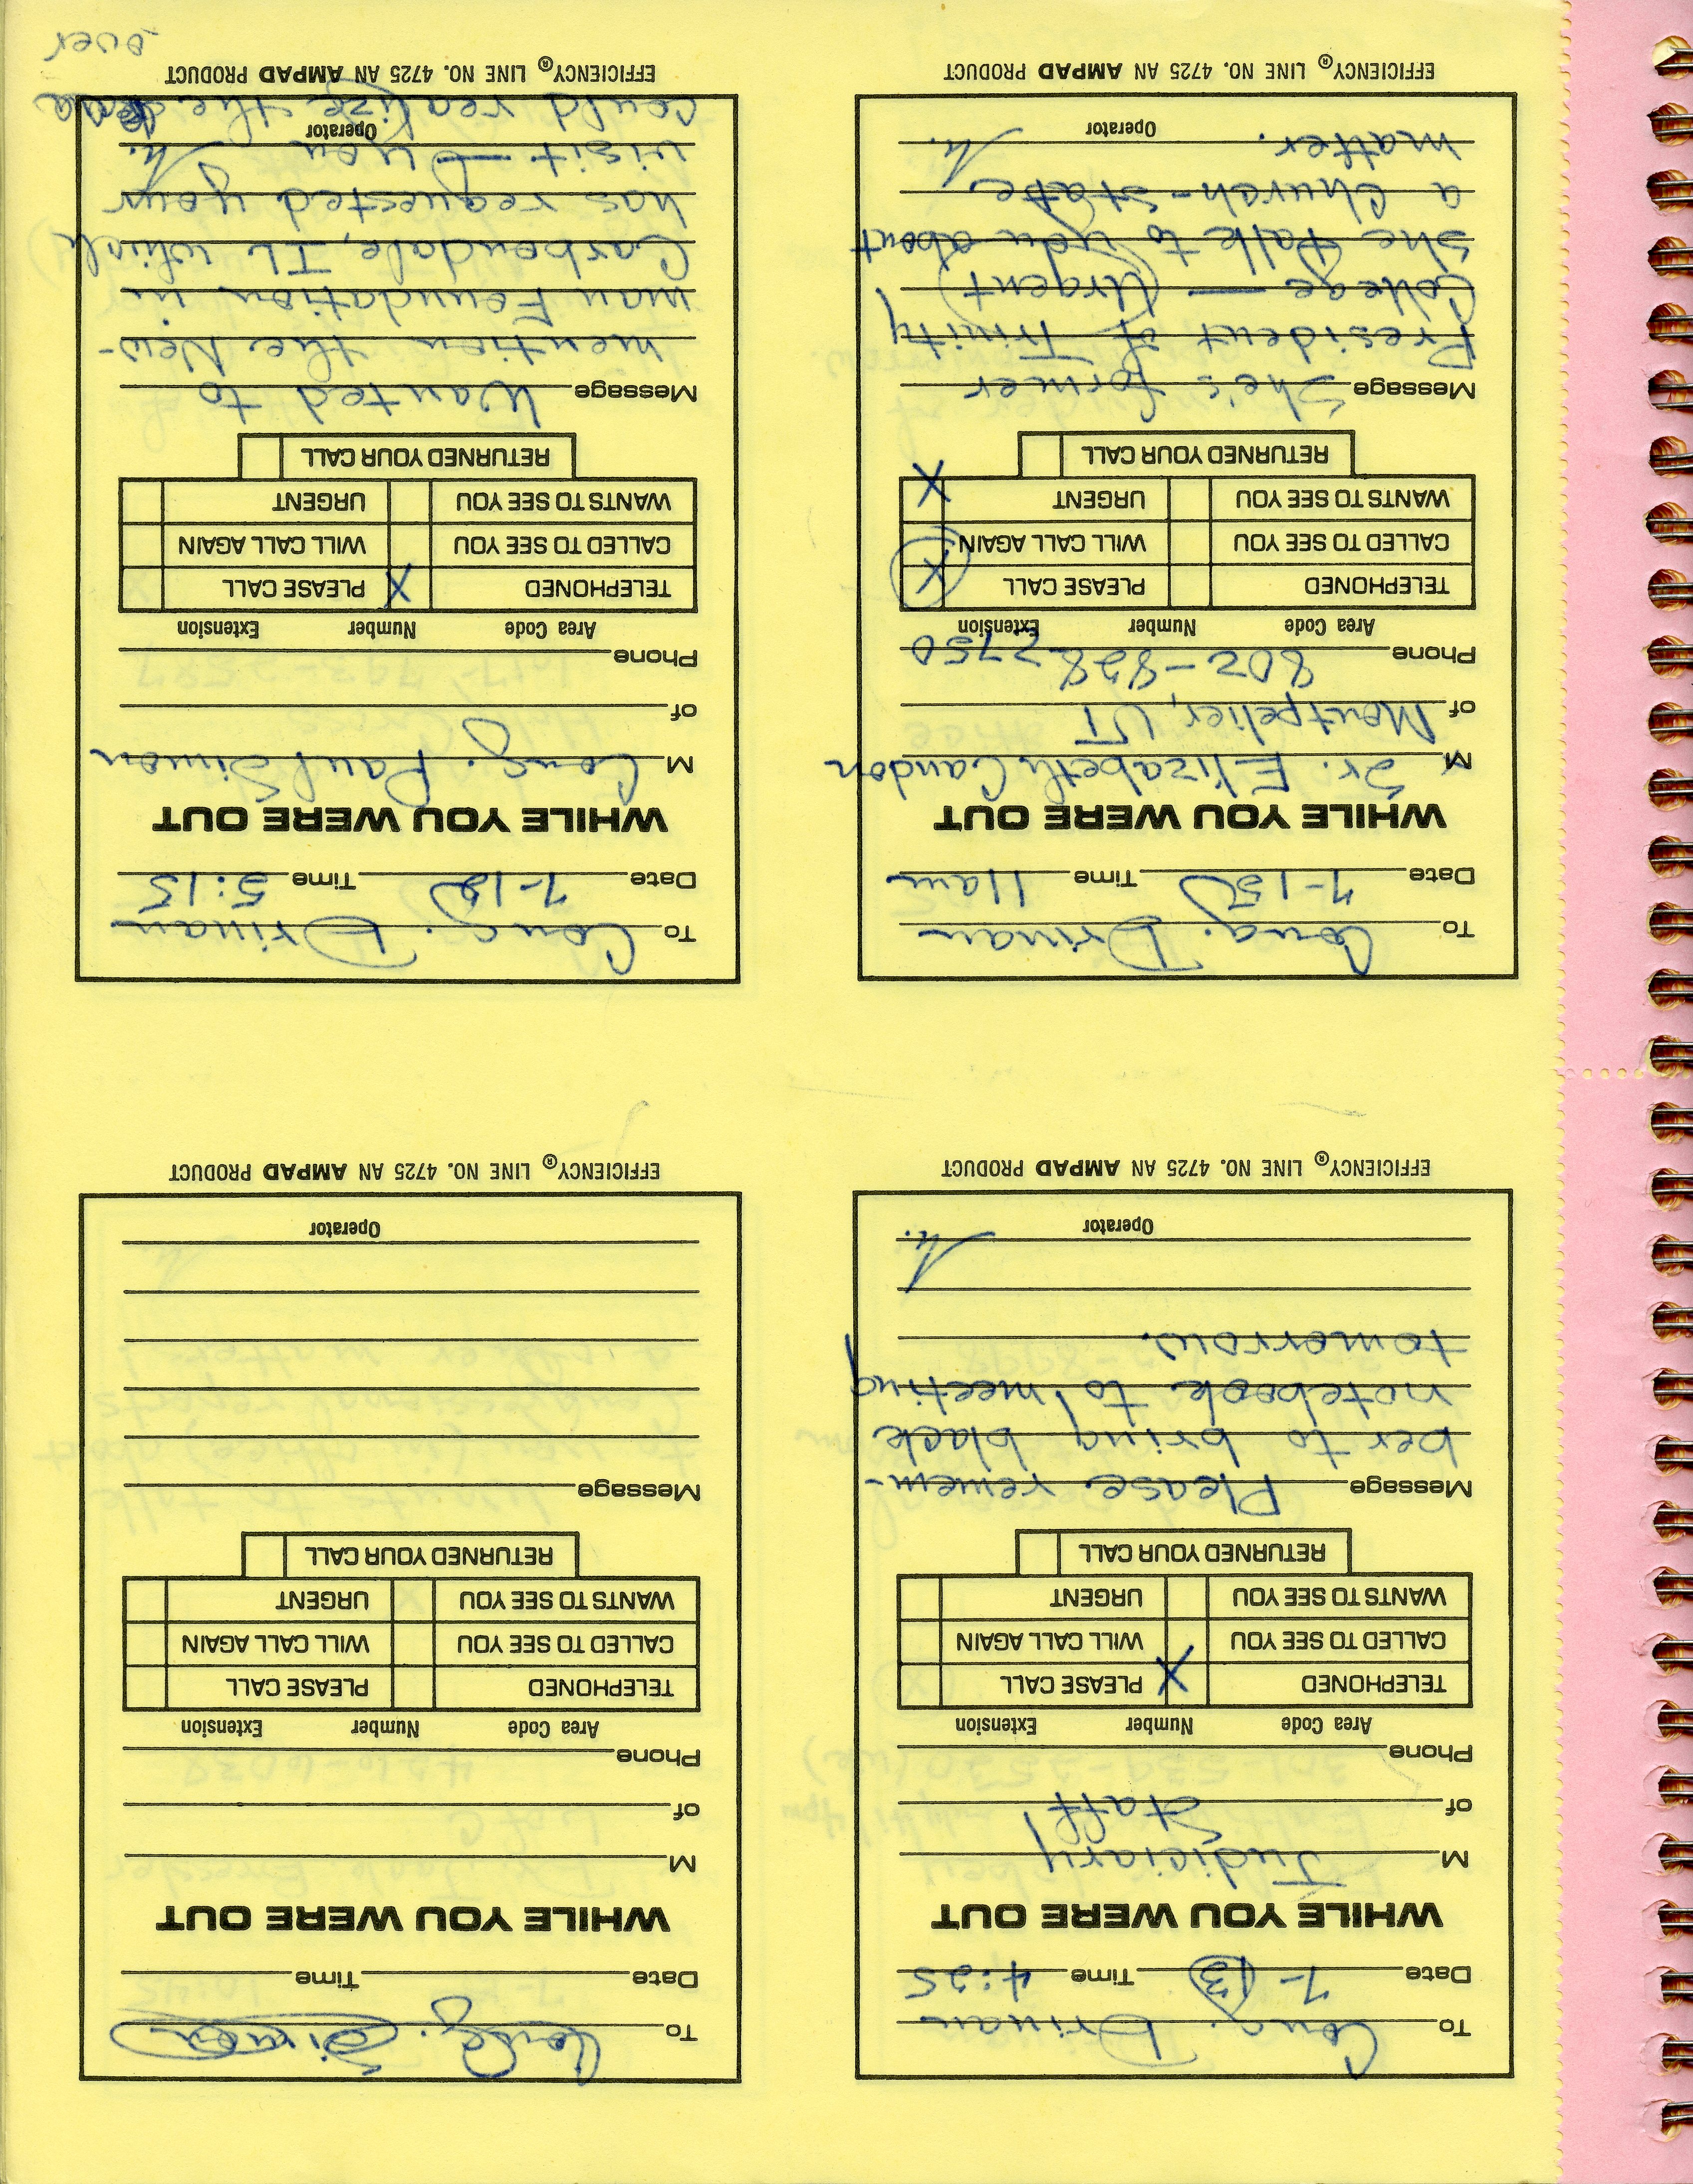 To Cong. Drinan
Date 7-13 Time 4:25
WHILE YOU WERE OUT
M Judiciary
of Staff
Phone
Area Code Number Extension
TELEPHONED X PLEASE CALL
CALLED TO SEE YOU WILL CALL AGAIN
WANTS TO SEE YOU URGENT
RETURNED YOUR CALL
Message Please remem-
ber to bring black
notebook to meeting
tomorrow.
Operator M.
EFFICIENCY® LINE NO. 4725 AN AMPAD PRODUCT
To Cong. Simon
Date Time
WHILE YOU WERE OUT
M
of
Phone
Area Code Number Extension
TELEPHONED PLEASE CALL
CALLED TO SEE YOU WILL CALL AGAIN
WANTS TO SEE YOU URGENT
RETURNED YOUR CALL
Message
Operator
EFFICIENCY® LINE NO. 4725 AN AMPAD PRODUCT
To Cong. Drinan
Date 7-15 Time 11am
WHILE YOU WERE OUT
M Sr. Elizabeth Candon
of Montpelier, VT
Phone 802-828 2750
Area Code Number Extension
TELEPHONED PLEASE CALL X
CALLED TO SEE YOU WILL CALL AGAIN
WANTS TO SEE YOU URGENT X
RETURNED YOUR CALL
Message She's former
President of Trinity
College — Urgent
she talk to you about
a Church-State
matter.
Operator M.
EFFICIENCY® LINE NO. 4725 AN AMPAD PRODUCT
To Cong. Drinan
Date 7-12 Time 5:15
WHILE YOU WERE OUT
M Cong. Paul Simon
of
Phone
Area Code Number Extension
TELEPHONED X PLEASE CALL
CALLED TO SEE YOU WILL CALL AGAIN
WANTS TO SEE YOU URGENT
RETURNED YOUR CALL
Message Wanted to
mention the New-
man Foundation in
Carbondale, IL which
has requested your
visit — you M.
Operator
could realize the
EFFICIENCY® LINE NO. 4725 AN AMPAD PRODUCT
over